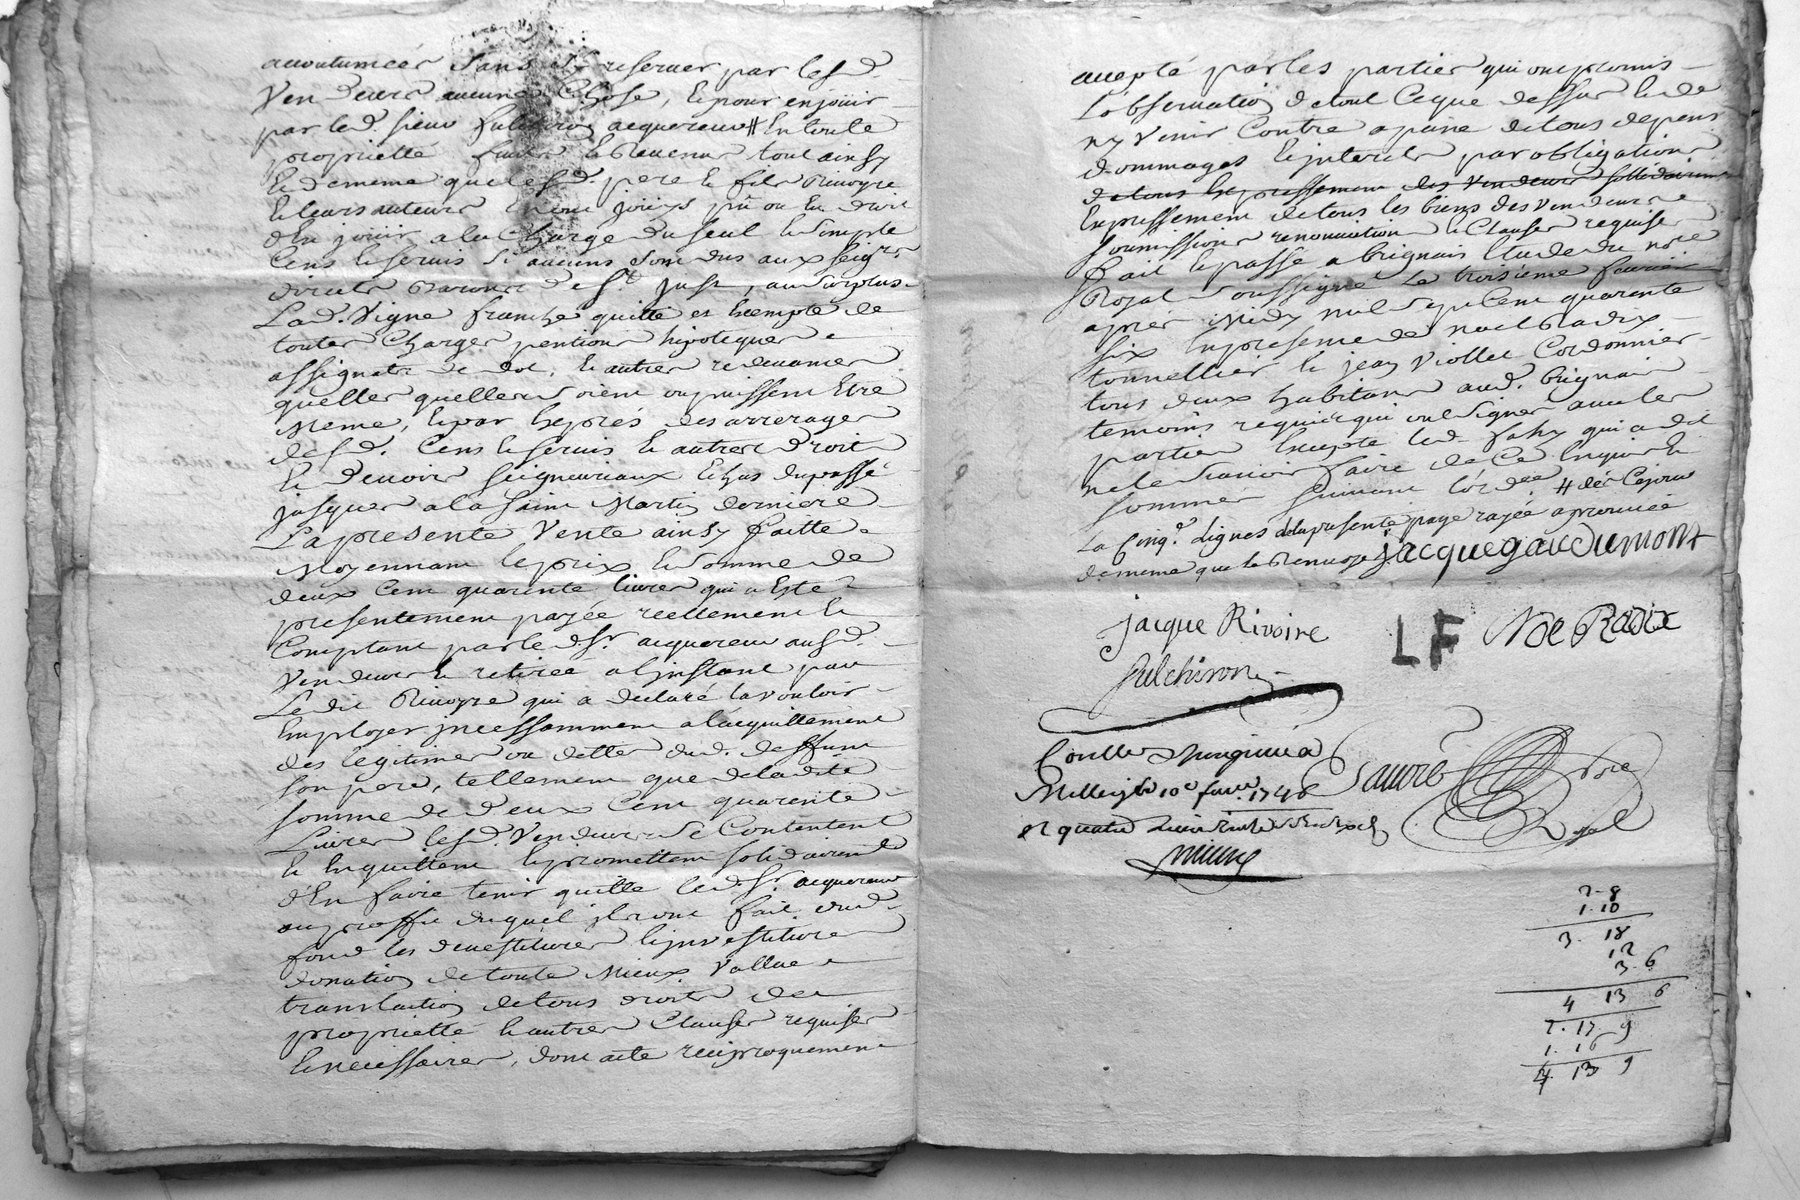 accoutumées sans s'y reserver par lesd.
Vendeurs aucune chose, Et pour en joüir
par led. sieur fulchiron acquereur # En toute
proprietté fruits Et Revenus tout ainsy
Et de meme que lesd. pere Et fils Rivoyre
Et leurs auteurs en ont joüys pû ou Eu droit
d'En joüir a la Charge du seul Et simple
Cens Et servis si aucuns sont dus aux seigrs
directs Barons de St just, au surplus
Lad. Vigne franche quitte et Exempte de
toutes Charges pentions hipoteques
assignats de dot, Et autres redevances
quelles quelles soient ou puissent Etre
Meme, Et par Exprés des arrerages
desd. Cens Et servis Et autres droits
Et devoirs seigneuriaux Echus du passé
jusques a la saint Martin derniere
La presente Vente ainsy faitte
Moyennant le prix Et somme de
deux Cent quarente livres qui a Esté
presentement payée reellement Et
Comptant par led. sr. acquereur ausd.
Vendeurs Et retirée a l'jnstant par
Ledit Rivoyre qui a declaré la vouloir
Employer jncessamment a l'acquittement
des légitimes ou dettes dud. deffunt
son pere, tellement que de ladite
somme de deux Cent quarente
Livres lesd. Vendeurs se Contentent
Et En quittent Et promettent solidairement
d'En faire tenir quitte led. sr. acquereur
au proffit duquel jls ont fait dud.
fond les devestitures Et jnvestitures
donation de toute Mieux Vallue
translation de tous droits de
proprietté Et autres Clauses requises
Et necessaires, dont acte reciproquement
accepté par les parties qui ont promis
l'observation de tout Ce que dessus Et de
ny Venir Contre a peine de tous depens
dommages Et jnterets par obligation
de tous Expressement des Vendeurs sollidairement
Expressement de tous les biens des vendeurs
soumissions renonciation Et Clauses requises
fait Et passé a brignais Etude du nore
Royal soussigné Le troisieme fevrier
aprés Midy mil sept Cent quarente
six En presence de noel Radix
tonnellier Et jean Viollet Cordonnier
tous deux habitans aud. brignais
temoins requis qui ont signez avec les
parties Excepté led. fahy qui a dit
ne le sçavoir faire de Ce Enquis Et
sommez suivant l'ordce # dés Ce jour
La Cinq.e Lignes de la presente page rayée aprouvée
de meme que le Renvoye jacque gaudumont
jacque Rivoire LF Noe Radix
fulchiron
Controllé a
Millery le 10e fevr. 1746
et quatre
Sauvré nore
Royal
2. 8
1. 10
3. 18
12
3. 6
4 13 6
2. 17 9
1. 16
4. 13 9